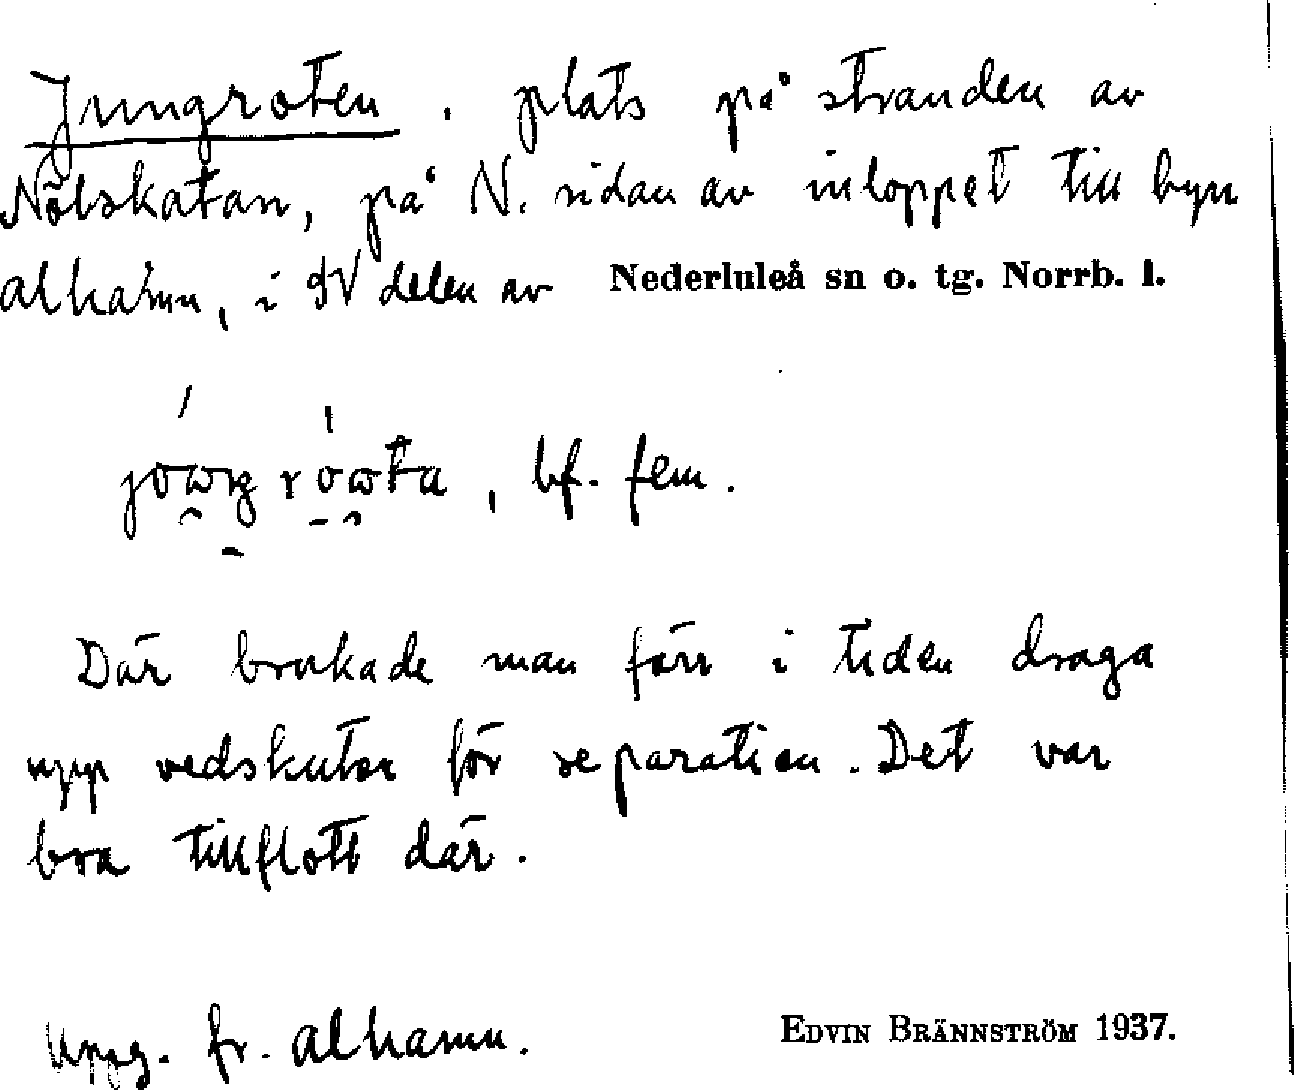 Jungroten, plats på stranden av
Nölskatan, på N. sidan av inloppet till byn
Alhamn, i SV delen av Nederluleå sn o. tg. Norrb. l.
bf. fem.
Där brukade man förr i tiden draga
upp vedskutor för reparation. Det var
bra tillflott där.
Uppg. fr. Alhamn.
EDVIN BRÄNNSTRÖM 1937.